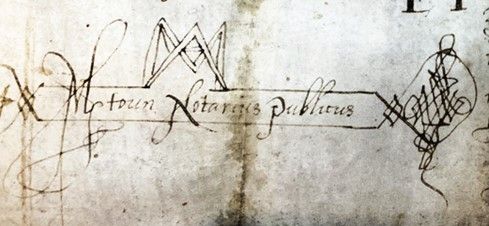 M toun Notarius Publicus